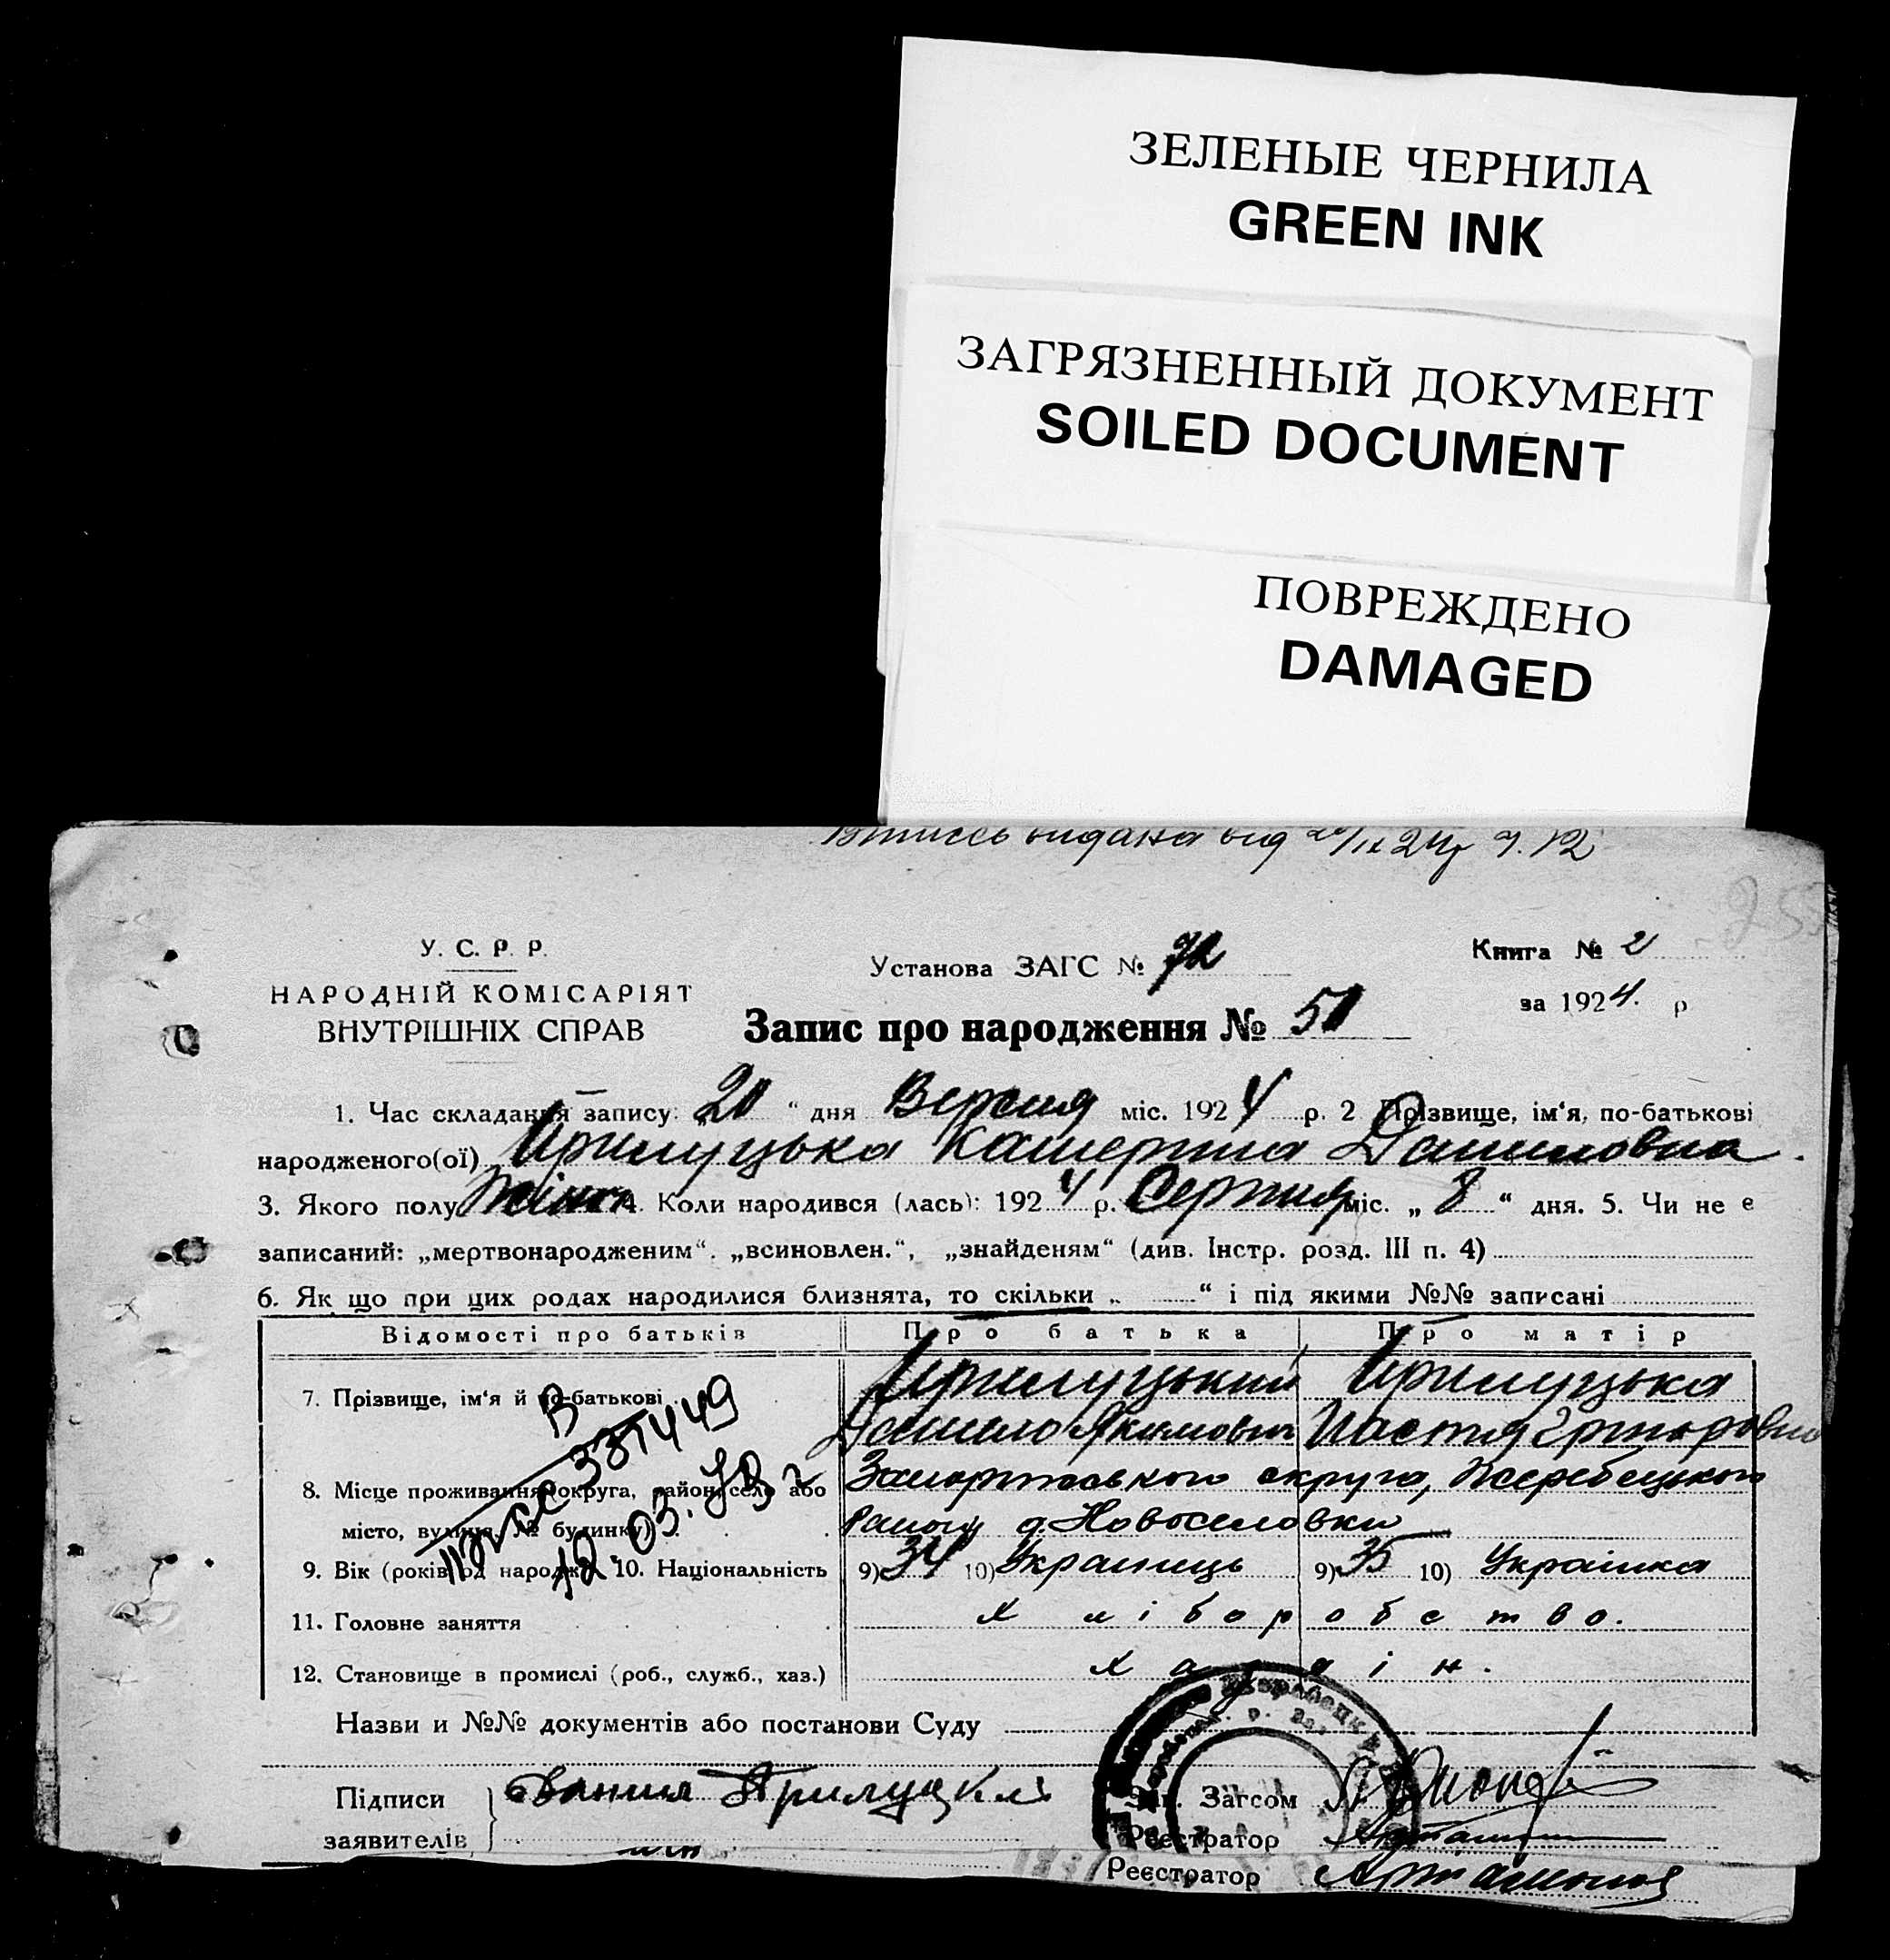 ЗЕЛЕНЫЕ ЧЕРНИЛА
GREEN INK
ЗАГРЯЗНЕННЫЙ ДОКУМЕНТ
SOILED DOCUMENT
ПОВРЕЖДЕНО
DAMAGED
видана від 20/IX 24р ч. 12
У. С. Р. Р.
НАРОДНІЙ КОМІСАРІЯТ
ВНУТРІШНІХ СПРАВ
Установа ЗАГС № 72
Запис про народження №
Книга № 2
за 1924. р
1. Час складання запису: „20“ дня Версня міс. 1924 р. 2 Прізвище, ім‘я, по-батькові
народженого(ої) Прилуцька Катерина Даниловна.
3. Якого полу жіноч 4. Коли народився (лась): 1924 р. Серпня міс. „8“ дня. 5. Чи не є
записаний: „мертвонародженим“. „всиновлен.“, „знайденям“ (див. Інстр. розд. III п. 4)
6. Як що при цих родах народилися близнята, то скільки „ “ і під якими №№ записані
Відомості про батьків Про батька Про матір
7. Прізвище, ім‘я й по-батькові Прилуцький Прилуцька
Данило Якимович Настя Григоровна
8. Місце проживання (округа, район, село або Запорізького округа, Жеребецького
місто, вулиця, № будинку) Району д. Новоселовки
9. Вік (років од народж.) 10. Національність 9) 34 10) Українць 9) 35 10) Українка
12.03.
11. Головне заняття Хліборобство.
12. Становище в промислі (роб., служб., хаз.) Хазяін.
Назви и №№ документів або постанови Суду
Підписи заявителів Данил Прилуцкий
Зав. Загсом
Реєстратор
Реєстратор Артамонов